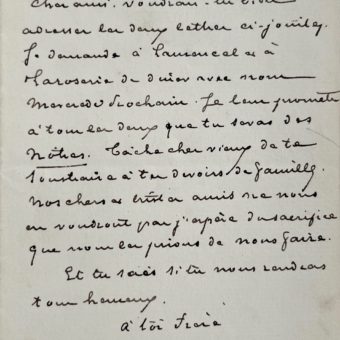 Cher ami. Voudrais-tu bien
adresser les deux lettres ci-jointes.
Je demande à Lamoncel et à
Laroserie de dîner avec nous
Mercredi prochain. Je leur promets
à tous les deux que tu seras des
nôtres. Tâche cher vieux de te
soustraire à tes devoirs de famille.
Nos chers et amis ne nous
en voudront pas j'espère du sacrifice
que nous les prions de nous faire.
Et tu sais si tu nous rendras
tous heureux.
à toi